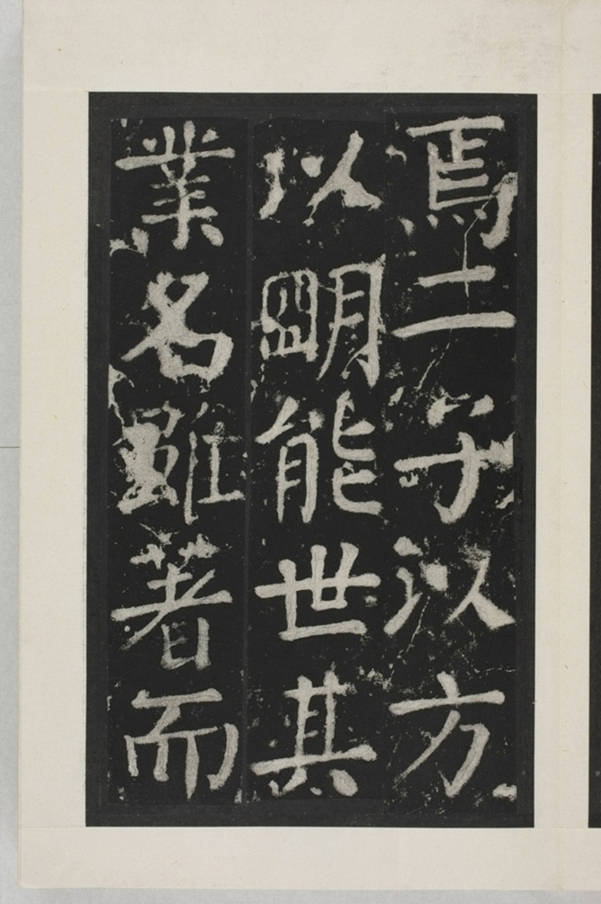 焉二子以方
以朙能世其
業名雖著而